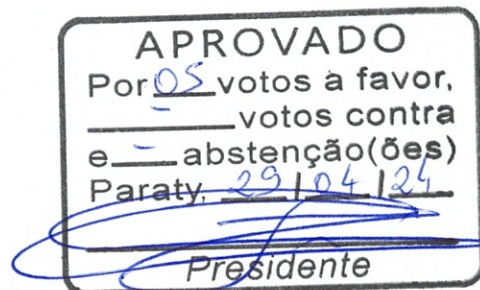 APROVADO
Por 05 votos a favor,
- votos contra
e - abstenção(ões)
Paraty, 29 / 04 / 24
Presidente